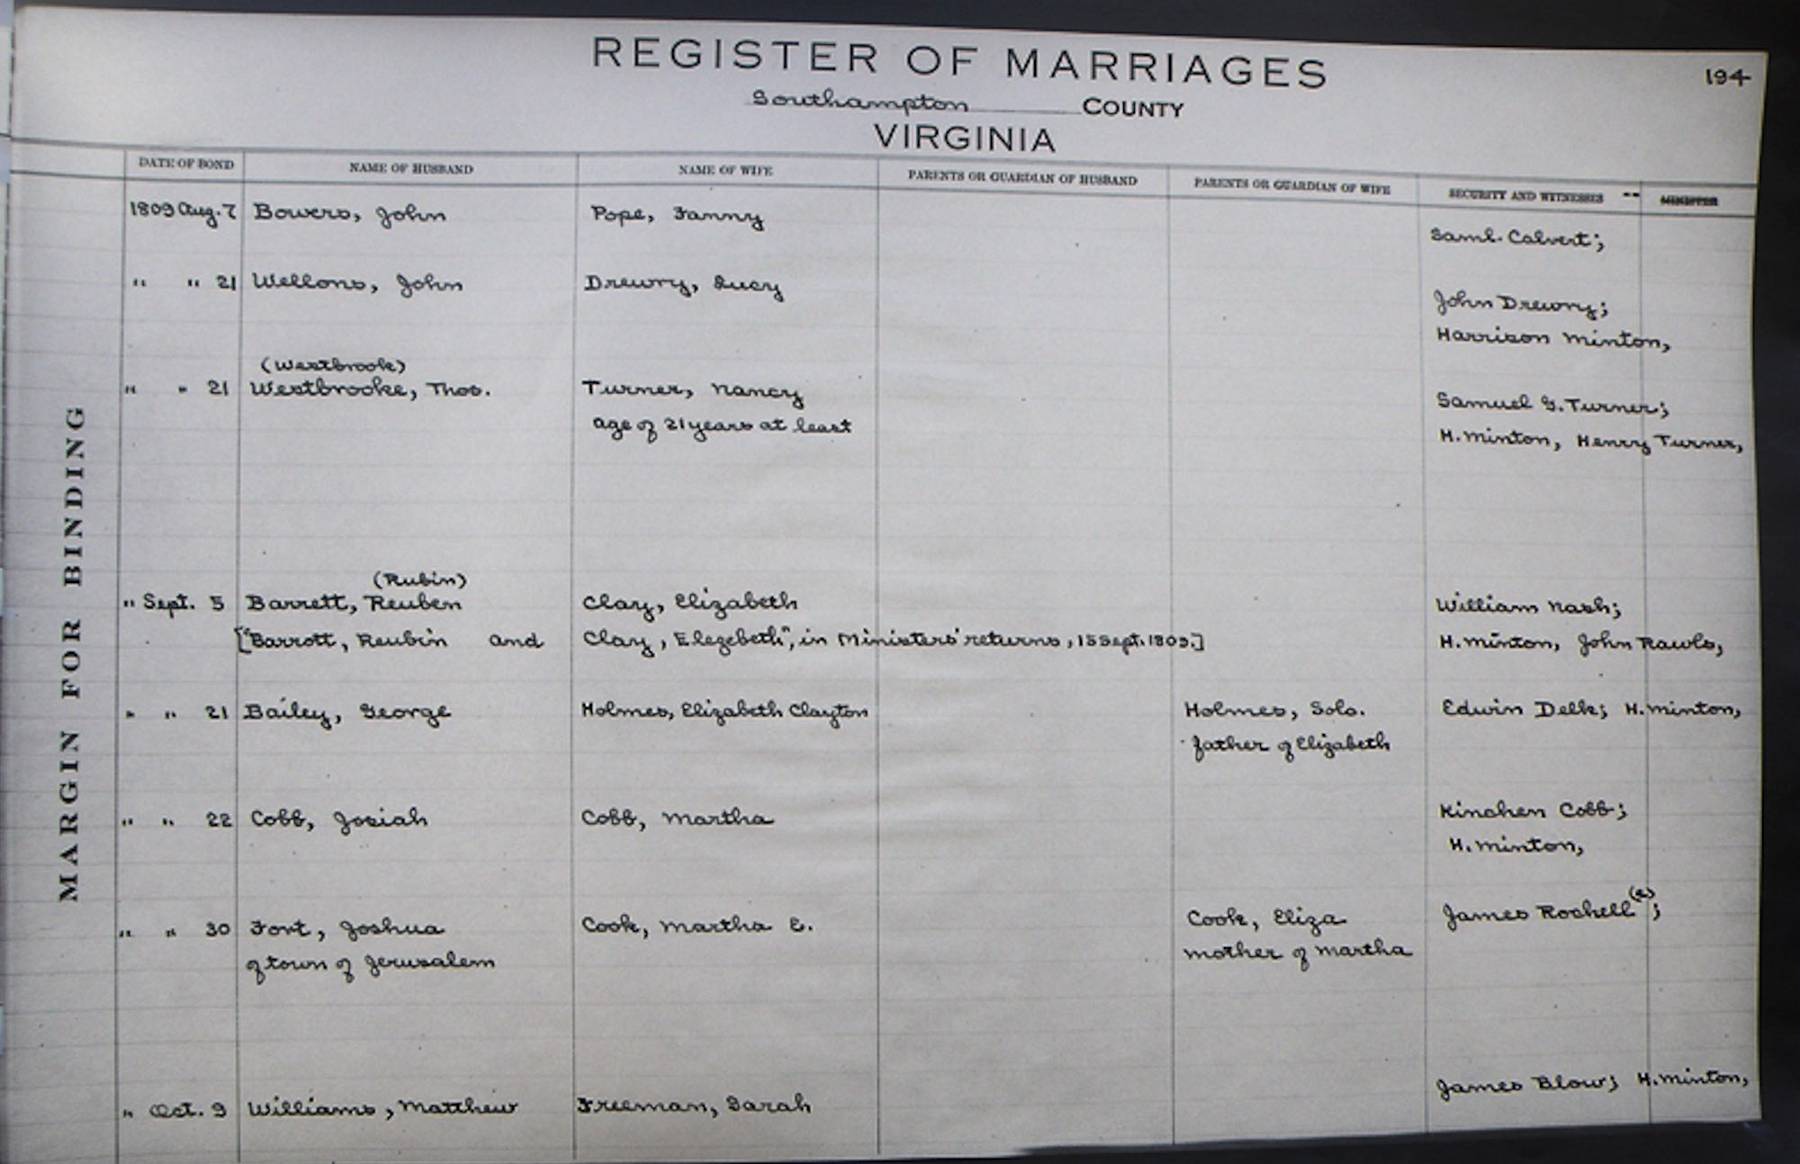 REGISTER OF MARRIAGES
194
Southampton COUNTY
VIRGINIA
DATE OF BOND NAME OF HUSBAND NAME OF WIFE PARENTS OR GUARDIAN OF HUSBAND PARENTS OR GUARDIAN OF WIFE SECURITY AND WITNESSES -- MINISTER
1809 Aug. 7 Bowers, John Pope, Fanny
Saml. Calvert;
" " 21 Wellons, John Drewry, Lucy
John Drewry;
Harrison Minton,
(Westbrook)
" " 21 Westbrooke, Thos. Turner, Nancy
Samuel G. Turner;
age of 21 years at least
H. Minton, Henry Turner,
(Rubin)
" Sept. 5 Barrett, Reuben Clay, Elizabeth William Nash;
["Barrott, Reubin and Clay, Elegebeth", in Ministers' returns, 15 Sept. 1809.] H. Minton, John Rawls,
" " 21 Bailey, George Holmes, Elizabeth Clayton Holmes, Solo. Edwin Delk; H. Minton,
father of Elizabeth
" " 22 Cobb, Josiah Cobb, Martha Kinchen Cobb;
H. Minton,
" " 30 Fort, Joshua Cook, Martha E. Cook, Eliza James Rochell(e);
of town of Jerusalem mother of Martha
" Oct. 9 Williams, Matthew Freeman, Sarah James Blow; H. Minton,
MARGIN FOR BINDING